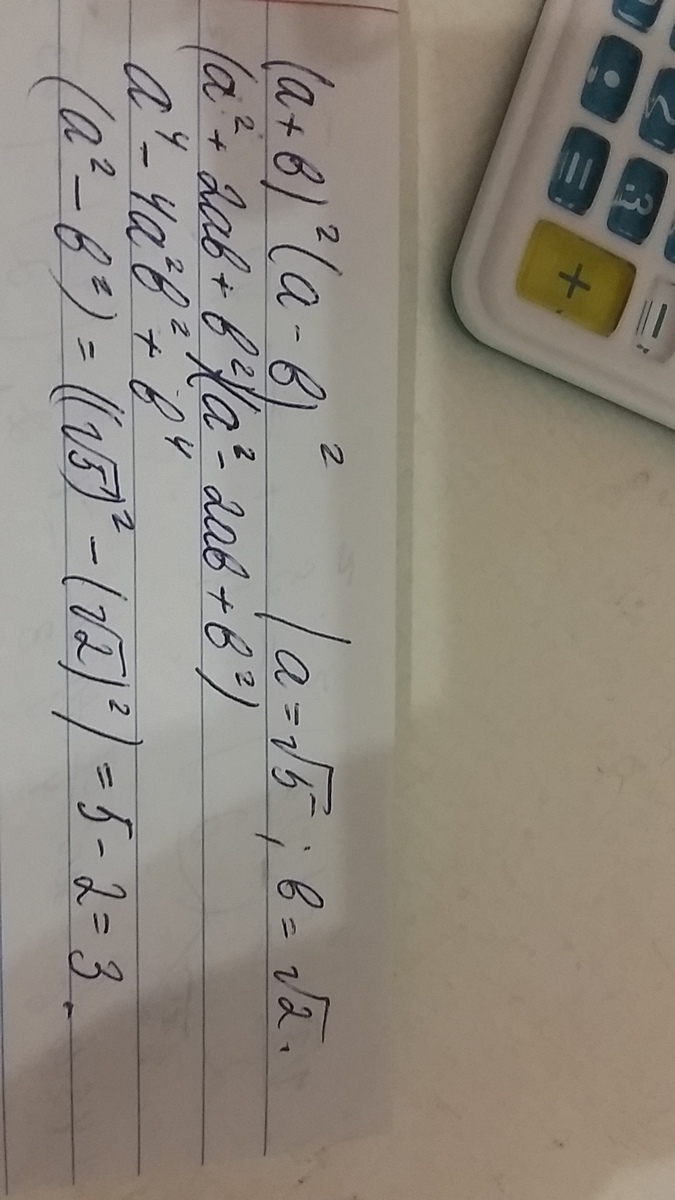 (a+b)²(a-b)² | a=√5; b=√2.
(a²+2ab+b²)(a²-2ab+b²)
a⁴-4a²b²+b⁴
(a²-b²)=((√5)²-(√2)²)=5-2=3.
2
3
=
+
=